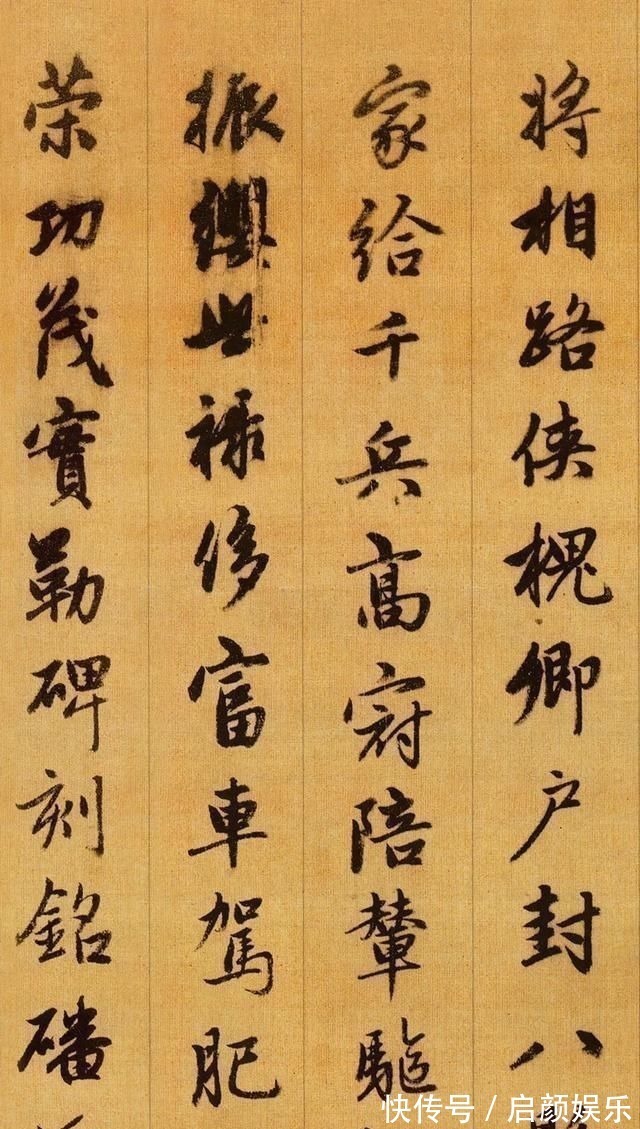 將相路侠槐卿户封八
家給千兵高冠陪輦驅
振纓世禄侈富車駕肥
荣功茂實勒碑刻銘磻
快传号 / 启颜娱乐